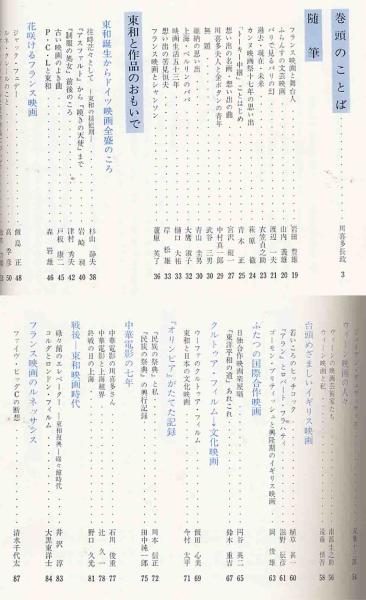 巻頭のことば 川喜多長政 3
随筆
フランス映画と舞台人 岩田豊雄 19
ふらんすの文芸映画 山内義雄 20
パリで見るパリの幻 渡辺一夫 21
過去・現在・未来 衣笠貞之助 23
カンヌ映画祭・七年の思い出 萩原 24
「トーキー中継」ことはじめ 青木正 25
想い出の名画・想い出の曲 宮沢縦一 27
川喜多夫人と金ボタンの青年 中村真一郎 29
無題 武谷三男 30
維納の思い出 青山圭男 30
上海・ベルリンのパパ 大鷹淑子 32
映画生活五十三年 樋口大祐 33
想い出の筈見恒夫 岸松雄 35
フランス映画とシャンソン 蘆原英了 36
東和と作品のおもいで
東和誕生からドイツ映画全盛のころ
往時茫々として―東和の揺籃期― 杉山静夫 38
「アスファルト」から「嘆きの天使」まで 岩崎昶 40
「制服の処女」前後のころ 津村秀夫 42
古い映画の余香 戸板康二 45
P・C・Lと東和 森岩雄 46
花咲けるフランス映画
ジャック・フェデー 飯島正 48
ルネ・クレールのこと 高季彦 50
ウィーン映画の人々
ウィーンの映画芸術家たち 南部圭之助 56
ウィーン映画と私 遠藤慎吾 58
台頭めざましいイギリス映画
若いころのヒッチコック 植草甚一 60
「アラン」とロバート・フラハティ 滋野辰彦 61
ゴーモン・ブリティッシュと興隆期のイギリス映画 岡俊雄 63
ふたつの国際合作映画
日独合作映画楽屋噺 円谷英二 65
「東洋平和の道」あれこれ 鈴木重吉 67
クルトゥア・フィルム→文化映画
ウーファのクルトゥア・フィルム 飯田心美 69
東和と日本の文化映画 今村太平 71
『オリンピア』がたてた記録
「民族の祭典」と私 岡本信正 72
「民族の祭典」の興行記録 田中純一郎 75
中華電影の七年
中華電影の川喜多さん 石川俊重 77
中華電影と上海楼界 辻久一 78
終戦の日の上海 野口久光 81
戦後・東和映画時代
碌々館のエレベーター―東和復興―碌々館時代 井沢淳 83
コルダとロンドン・フィルム 大黒東洋士 84
フランス映画のルネッサンス
ファイヴ・ビッグCの断想 清水千代太 87